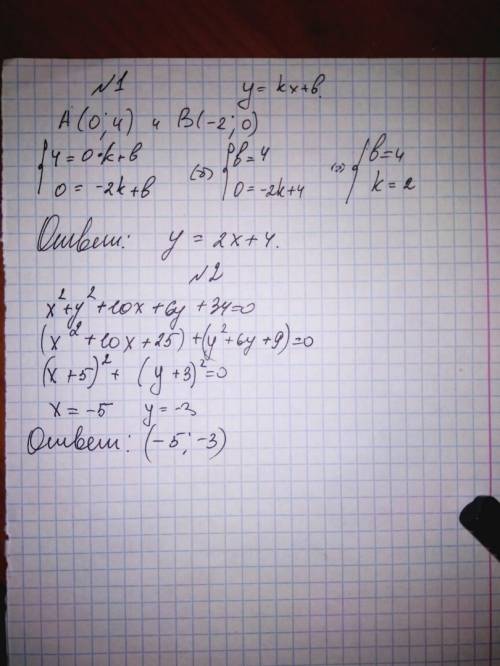 №1 y = kx+b.
A(0; 4) и B(-2; 0)
{4 = 0·k+b {b=4 {b=4
0 = -2k+b (=) 0=-2k+4 (=) k=2
Ответ: y = 2x+4.
№2
x²+y²+10x+6y+34=0
(x²+10x+25)+(y²+6y+9)=0
(x+5)²+ (y+3)²=0
x = -5 y = -3
Ответ: (-5; -3)